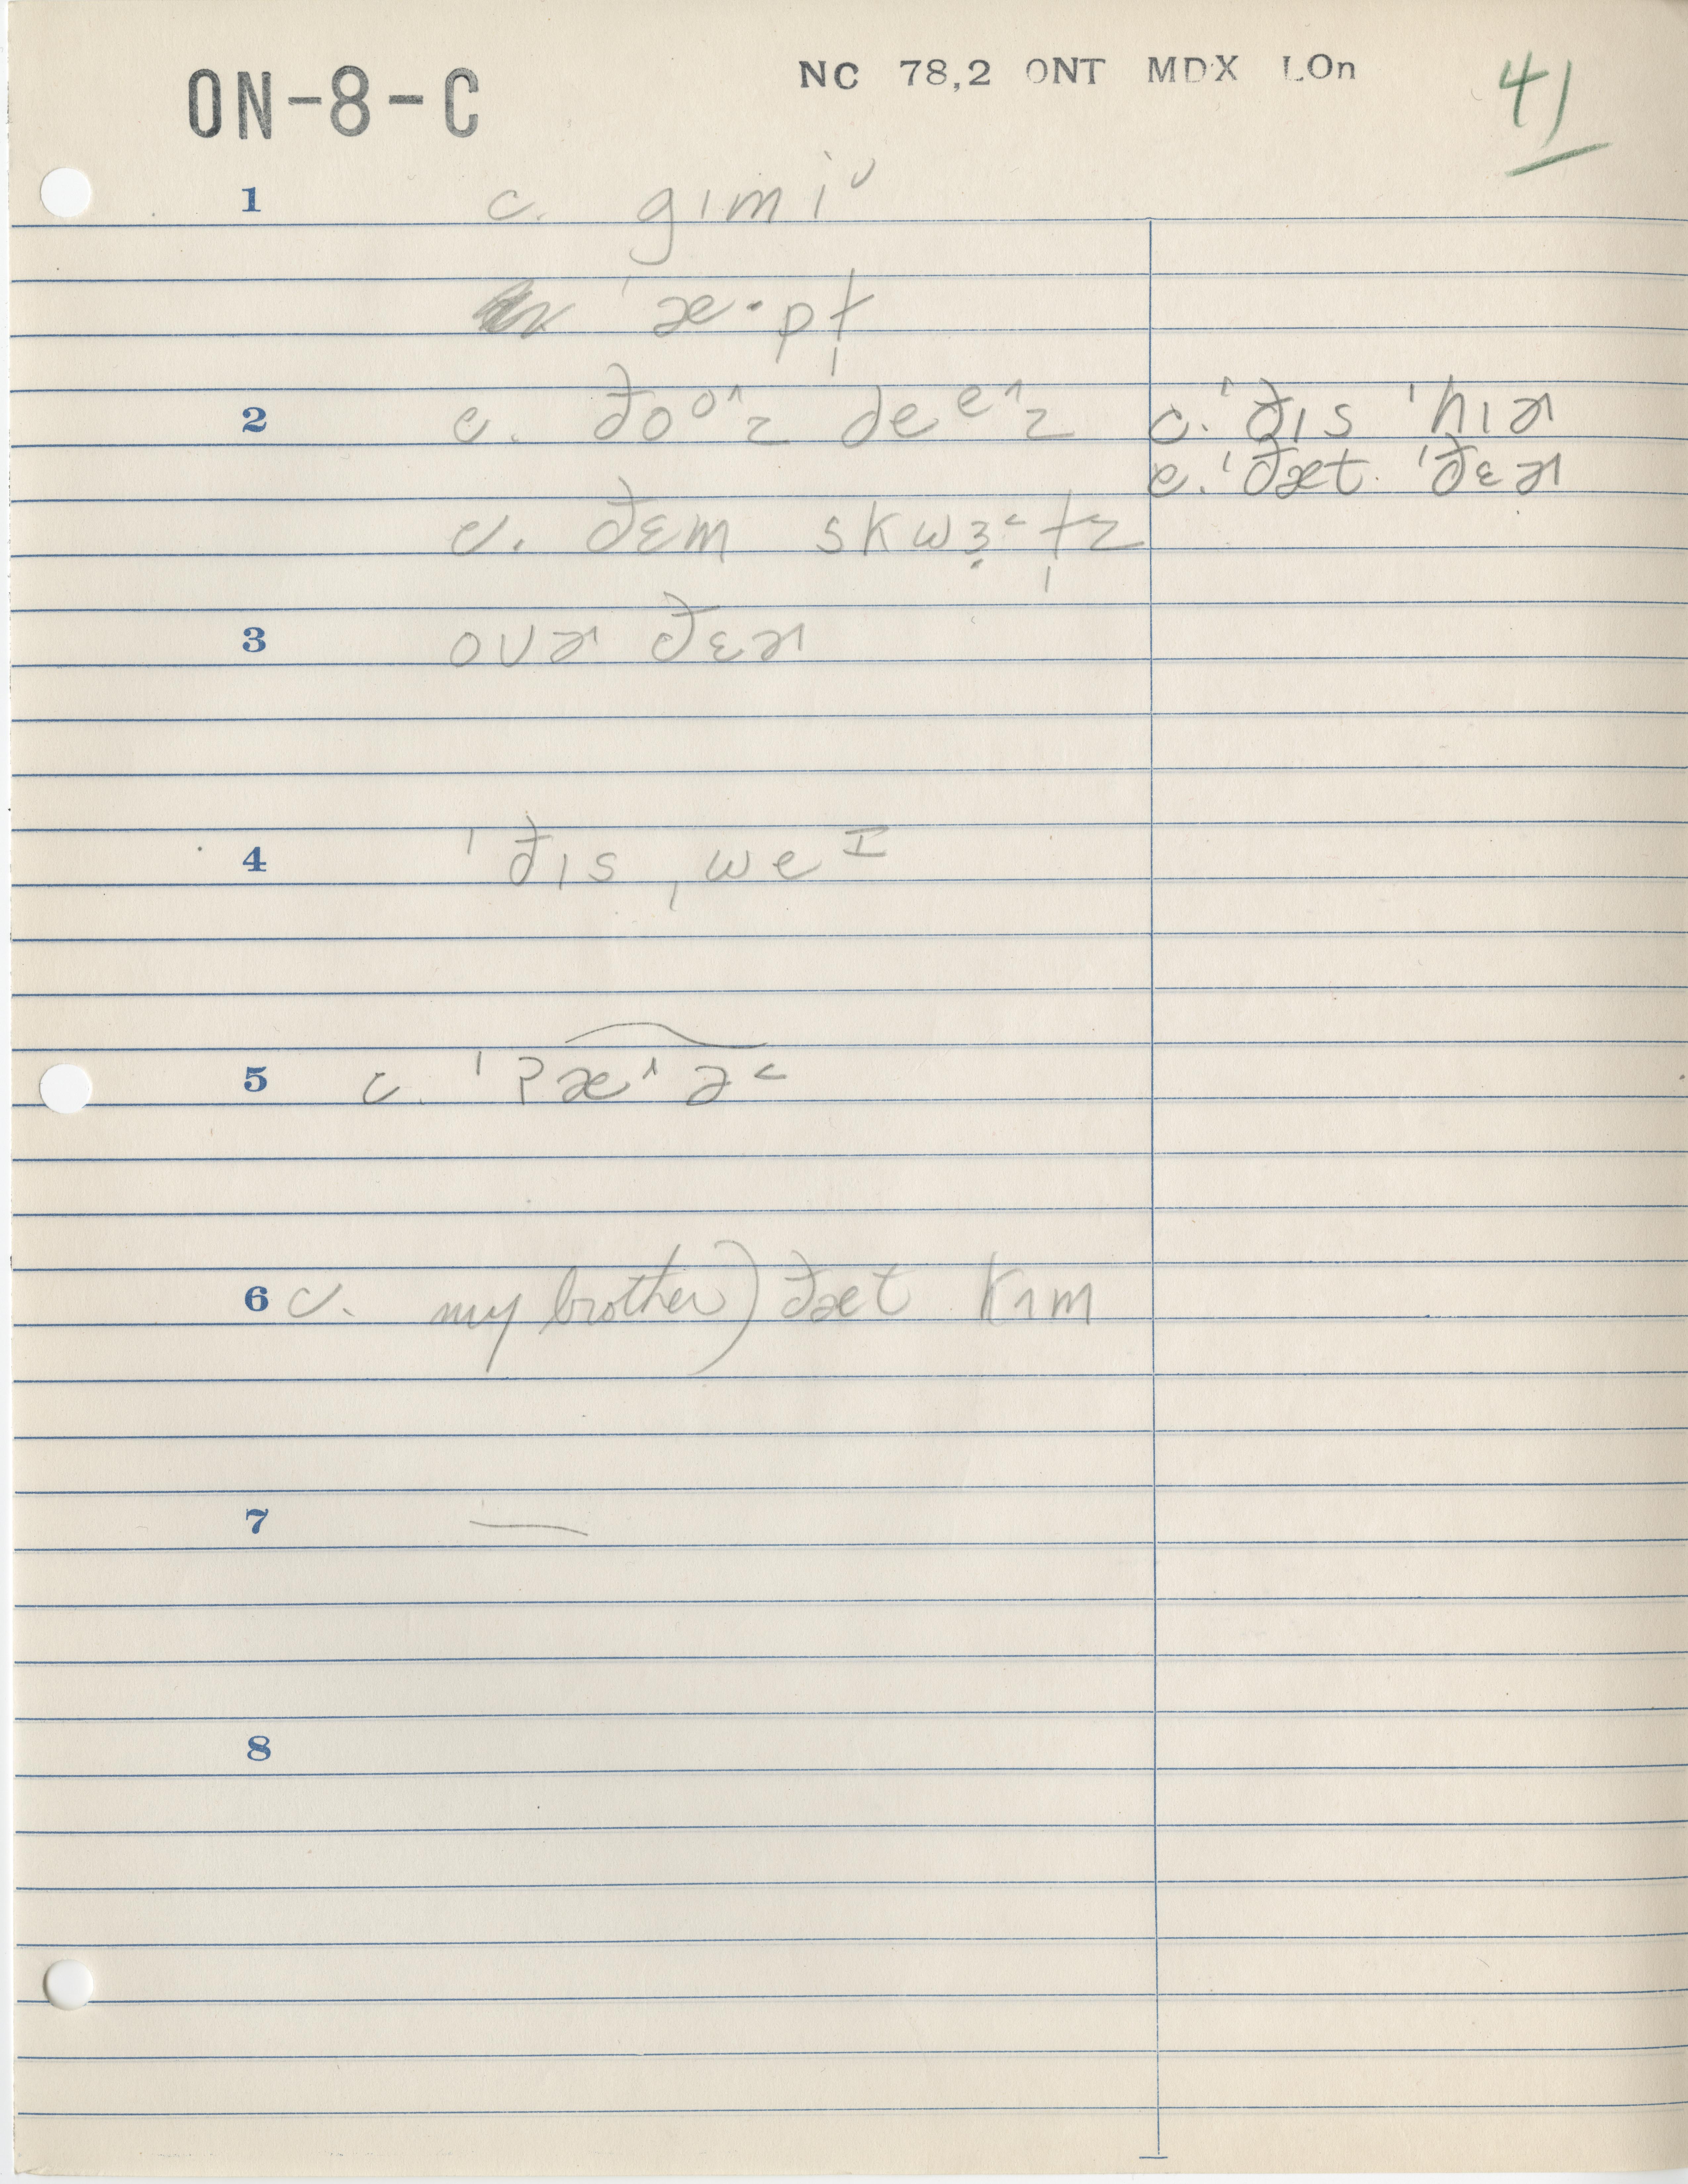 ON-8-C
NC 78,2 ONT MDX LOn
41
1 c. gɪmi˅
ˈæ·pt̩
2 c. ðoo˄z ðee˄z
c. ˈðɪs ˈhɪɚ
c. ˈðæt ˈðɛɚ
c. ðɛm skwɜ˂t̩z
3 ovɚ ðɛɚ
4 ˈðɪs ˌweɪ
5 c. ˈʔæ˄ə˂
6 c. my brother) ðæt kɪm
7 —
8